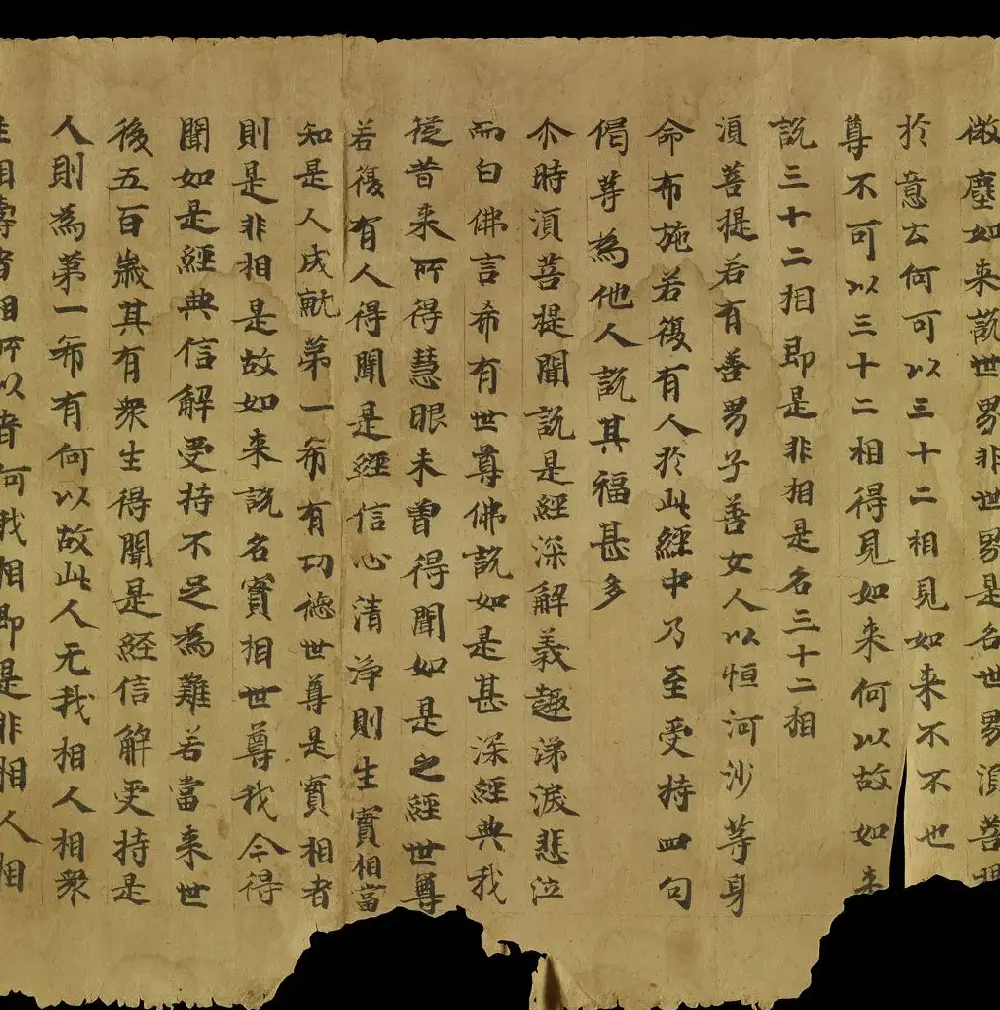 微塵如来說世界非世界是名世界湏菩提
於意云何可以三十二相見如来不不也
尊不可以三十二相得見如来何以故如来
說三十二相即是非相是名三十二相
湏菩提若有善男子善女人以恒河沙等身
命布施若復有人於此經中乃至受持四句
偈等為他人說其福甚多
尒時湏菩提聞說是經深解義趣涕淚悲泣
而白佛言希有世尊佛說如是甚深經典我
從昔来所得慧眼未曽得聞如是之經世尊
若復有人得聞是經信心清淨則生實相當
知是人成就第一希有功德世尊是實相者
則是非相是故如来說名實相世尊我今得
聞如是經典信解受持不足為難若當来世
後五百歲其有衆生得聞是經信解受持是
人則為第一希有何以故此人无我相人相衆
生相壽者相所以者何我相即是非相人相